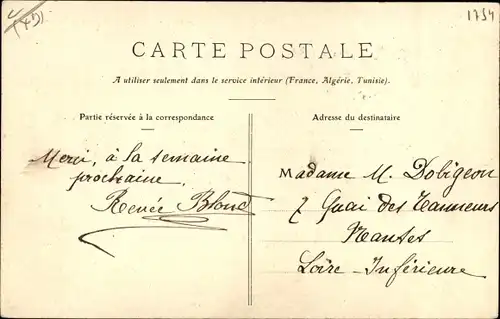 1754
CARTE POSTALE
A utiliser seulement dans le service intérieur (France, Algérie, Tunisie).
Partie réservée à la correspondance
Adresse du destinataire
Merci, à la semaine
prochaine.
Renée Blond
Madame M. Dobigeon
7 Quai des Tanneurs
Nantes
Loire-Inférieure